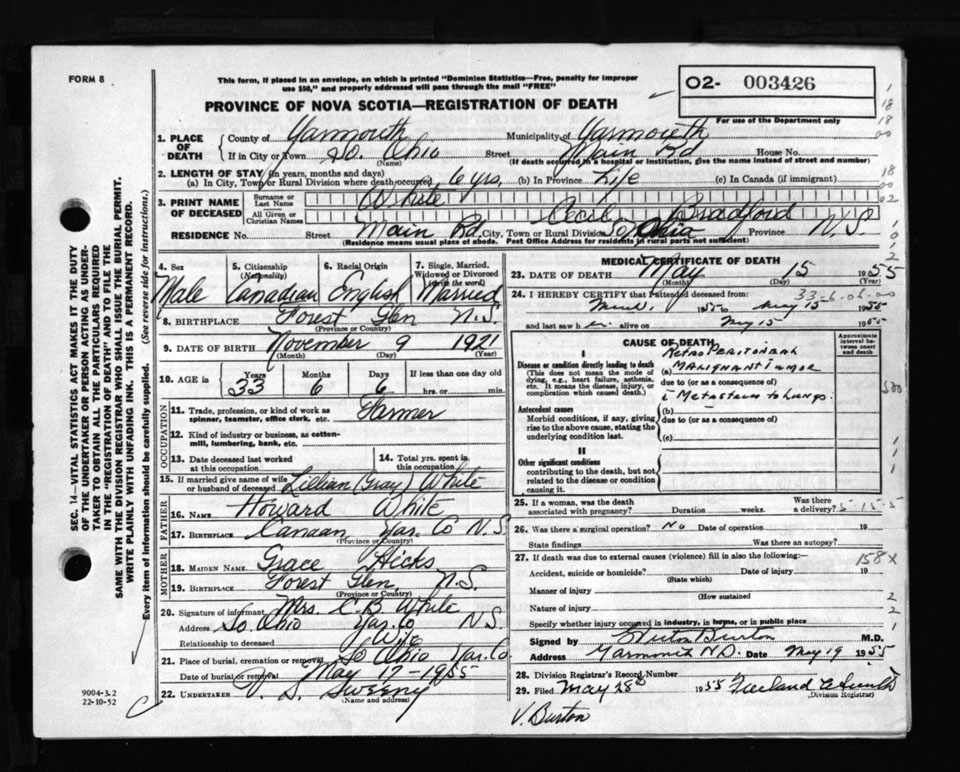 FORM 8
This form, if placed in an envelope, on which is printed "Dominion Statistics—Free, penalty for improper
use $50," and properly addressed will pass through the mail "FREE"
PROVINCE OF NOVA SCOTIA—REGISTRATION OF DEATH
02- 003426
For use of the Department only
1. PLACE OF DEATH
County of Yarmouth Municipality of Yarmouth
If in City or Town So. Ohio Street Main Rd House No.
(Name) (If death occurred in a hospital or institution, give the name instead of street and number)
2. LENGTH OF STAY (in years, months and days)
(a) In City, Town or Rural Division where death occurred 6 yrs. (b) In Province Life (c) In Canada (if immigrant)
3. PRINT NAME OF DECEASED
Surname or Last Name White
All Given or Christian Names Cecil Bradford
RESIDENCE No. Street Main Rd. City, Town or Rural Division So Ohio Province N.S.
(Residence means usual place of abode. Post Office Address for residents in rural parts not sufficient)
4. Sex Male
5. Citizenship (Nationality) Canadian
6. Racial Origin English
7. Single, Married, Widowed or Divorced (write the word) Married
8. BIRTHPLACE Forest Glen N.S.
(Province or Country)
9. DATE OF BIRTH November 9 1921
(Month) (Day) (Year)
10. AGE in Years 33 Months 6 Days 6 If less than one day old
hrs. or min.
OCCUPATION
11. Trade, profession, or kind of work as
spinner, teamster, office clerk, etc. Farmer
12. Kind of industry or business, as cotton-
mill, lumbering, bank, etc.
13. Date deceased last worked
at this occupation
14. Total yrs. spent in
this occupation
15. If married give name of wife
or husband of deceased Lillian (Gray) White
FATHER
16. NAME Howard White
17. BIRTHPLACE Canaan Yar. Co N.S.
(Province or Country)
MOTHER
18. MAIDEN NAME Grace Hicks
19. BIRTHPLACE Forest Glen, N.S.
(Province or Country)
20. Signature of informant Mrs. C. B. White
Address So. Ohio Yar. Co N.S.
Relationship to deceased Wife
21. Place of burial, cremation or removal So Ohio Yar. Co.
Date of burial or removal May 17-1955
22. UNDERTAKER V. S. Sweeny
(Name and address)
MEDICAL CERTIFICATE OF DEATH
23. DATE OF DEATH May 15 1955
(Month) (Day)
33-6-06-00
24. I HEREBY CERTIFY that I attended deceased from:
1955 to May 15 1955
and last saw h alive on May 15 1955
CAUSE OF DEATH
Approximate interval between onset and death
I
Disease or condition directly leading to death
(This does not mean the mode of
dying, e.g., heart failure, asthenia,
etc. It means the disease, injury, or
complication which caused death.)
(a) Retro Peritoneal
Malignant Tumor
due to (or as a consequence of)
c Metastases to Lungs.
Antecedent causes
Morbid conditions, if any, giving
rise to the above cause, stating the
underlying condition last.
(b)
due to (or as a consequence of)
(c)
II
Other significant conditions
contributing to the death, but not
related to the disease or condition
causing it.
25. If a woman, was the death
associated with pregnancy? Duration weeks. Was there
a delivery? 5-15-5
26. Was there a surgical operation? No Date of operation 19
State findings Was there an autopsy?
27. If death was due to external causes (violence) fill in also the following:— 158x
Accident, suicide or homicide? Date of injury 19
(State which)
Manner of injury
(How sustained
Nature of injury
Specify whether injury occurred in industry, in home, or in public place
Signed by Burton M.D.
Address Yarmouth N.S. Date May 19 1955
28. Division Registrar's Record Number
29. Filed May 28 1955 Freeland
(Division Registrar)
V. Burton
9004-3.2
22-10-52
SEC. 14—VITAL STATISTICS ACT MAKES IT THE DUTY
OF THE UNDERTAKER OR PERSON ACTING AS UNDER-
TAKER TO OBTAIN ALL THE PARTICULARS REQUIRED
IN THE "REGISTRATION OF DEATH" AND TO FILE THE
SAME WITH THE DIVISION REGISTRAR WHO SHALL ISSUE THE BURIAL PERMIT.
WRITE PLAINLY WITH UNFADING INK. THIS IS A PERMANENT RECORD.
Every item of information should be carefully supplied. (See reverse side for instructions.)